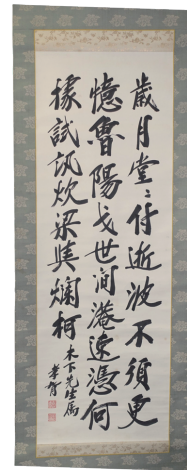 歲月堂〻付逝波不須更
憶魯陽戈世间淹速憑何
據試訊炊梁與爛柯
木下先生属
孝胥